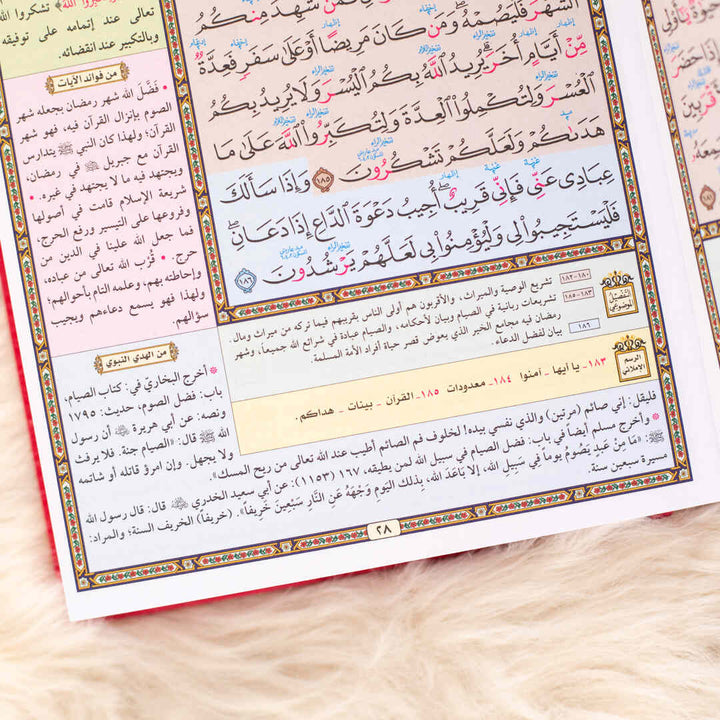 الشَّهْرَ فَلْيَصُمْهُ ۖ وَمَن كَانَ مَرِيضًا أَوْ عَلَىٰ سَفَرٍ فَعِدَّةٌ
مِّنْ أَيَّامٍ أُخَرَ ۗ يُرِيدُ اللَّهُ بِكُمُ الْيُسْرَ وَلَا يُرِيدُ بِكُمُ
الْعُسْرَ وَلِتُكْمِلُوا الْعِدَّةَ وَلِتُكَبِّرُوا اللَّهَ عَلَىٰ مَا
هَدَىٰكُمْ وَلَعَلَّكُمْ تَشْكُرُونَ ١٨٥ وَإِذَا سَأَلَكَ
عِبَادِى عَنِّى فَإِنِّى قَرِيبٌ ۖ أُجِيبُ دَعْوَةَ الدَّاعِ إِذَا دَعَانِ ۖ
فَلْيَسْتَجِيبُوا لِى وَلْيُؤْمِنُوا بِى لَعَلَّهُمْ يَرْشُدُونَ ١٨٦
تعالى عند إتمامه على توفيقه
وبالتكبير عند انقضائه.
من فوائد الآيات
• فَضَّلَ الله شهر رمضان بجعله شهر
الصوم بإنزال القرآن فيه، فهو شهر
القرآن؛ ولهذا كان النبي ﷺ يتدارس
القرآن مع جبريل ﷺ في رمضان،
ويجتهد فيه ما لا يجتهد في غيره. •
شريعة الإسلام قامت في أصولها
وفروعها على التيسير ورفع الحرج،
فما جعل الله علينا في الدين من
حرج. • قُرْب الله تعالى من عباده،
وإحاطته بهم، وعلمه التام بأحوالهم؛
ولهذا فهو يسمع دعاءهم ويجيب
سؤالهم.
التفصيل الموضوعي
١٨٠-١٨٢ تشريع الوصية والميراث، والأقربون هم أولى الناس بقريبهم فيما تركه من ميراث ومال.
١٨٣-١٨٥ تشريعات ربانية في الصيام وبيان لأحكامه، والصيام عبادة في شرائع الله جميعاً، وشهر
رمضان فيه مجامع الخير الذي يعوض قصر حياة أفراد الأمة المسلمة.
١٨٦ بيان لفضل الدعاء.
الرسم الإملائي
١٨٣- يا أيها - آمنوا ١٨٤- معدودات ١٨٥- القرآن - بينات - هداكم.
من الهدي النبوي
* أخرج البخاري في: كتاب الصيام،
باب: فضل الصوم، حديث: ١٧٩٥
ونصه: عن أبي هريرة ﷺ أن رسول
الله ﷺ قال: «الصيام جنة. فلا يرفث
ولا يجهل. وإن امرؤ قاتله أو شاتمه
فليقل: إني صائم (مرتين) والذي نفسي بيده! لخلوف فم الصائم أطيب عند الله تعالى من ريح المسك».
* وأخرج مسلم أيضاً في باب: فضل الصيام في سبيل الله لمن يطيقه، ١٦٧ (١١٥٣): عن أبي سعيد الخدري ﷺ قال: قال رسول الله
ﷺ: «مَا مِنْ عَبْدٍ يَصُومُ يوماً فِي سَبِيلِ الله، إِلا بَاعَدَ الله، بِذلك اليَوم وَجْهَهُ عَنِ النَّارِ سَبْعِينَ خَرِيفاً». (خريفاً) الخريف السنة؛ والمراد:
مسيرة سبعين سنة.
٢٨